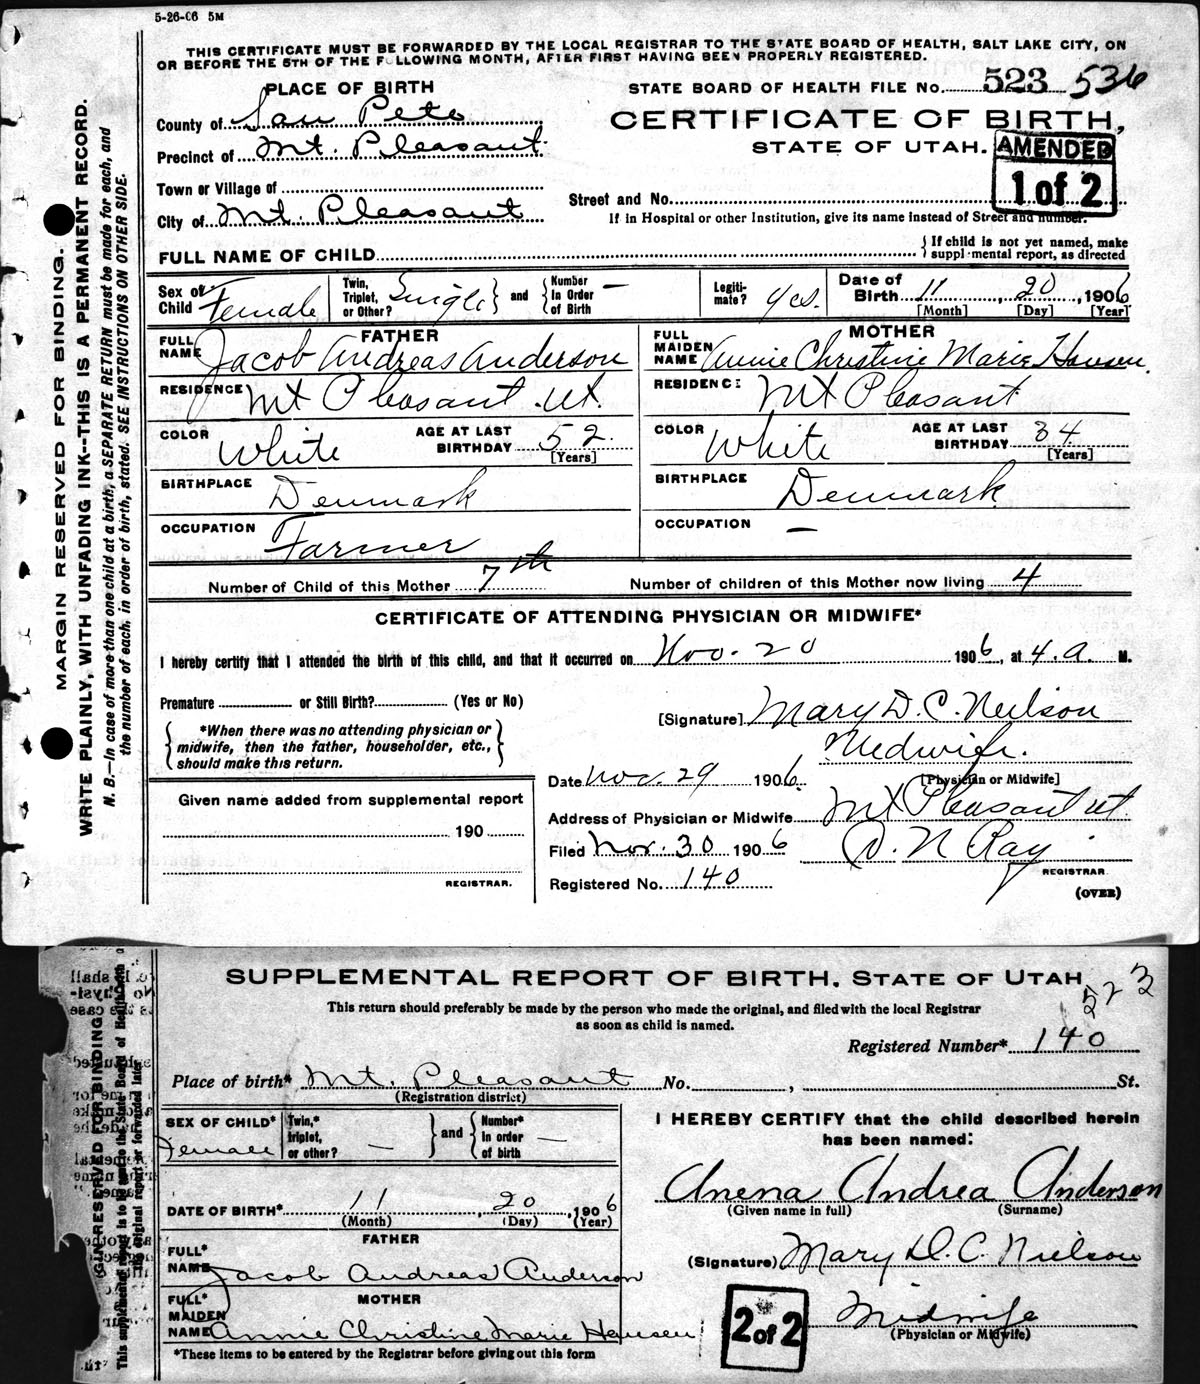 5-26-06 5M
THIS CERTIFICATE MUST BE FORWARDED BY THE LOCAL REGISTRAR TO THE STATE BOARD OF HEALTH, SALT LAKE CITY, ON
OR BEFORE THE 5TH OF THE FOLLOWING MONTH, AFTER FIRST HAVING BEEN PROPERLY REGISTERED.
PLACE OF BIRTH
STATE BOARD OF HEALTH FILE No. 523 536
County of San Pete
CERTIFICATE OF BIRTH,
Precinct of Mt. Pleasant
STATE OF UTAH.
AMENDED
1 of 2
Town or Village of
Street and No.
City of Mt. Pleasant
If in Hospital or other Institution, give its name instead of Street and number.
FULL NAME OF CHILD
{ If child is not yet named, make
supplemental report, as directed
Sex of Child Female
Twin, Triplet, or Other? Single } and { Number In Order of Birth —
Legitimate? Yes.
Date of Birth 11, 20, 1906
[Month] [Day] [Year]
FATHER
FULL NAME Jacob Andreas Anderson
MOTHER
FULL MAIDEN NAME Annie Christine Marie Hansen.
RESIDENCE Mt Pleasant. Ut.
RESIDENCE Mt Pleasant
COLOR White AGE AT LAST BIRTHDAY 52. [Years]
COLOR White AGE AT LAST BIRTHDAY 34 [Years]
BIRTHPLACE Denmark
BIRTHPLACE Denmark
OCCUPATION Farmer
OCCUPATION —
Number of Child of this Mother 7th Number of children of this Mother now living 4
CERTIFICATE OF ATTENDING PHYSICIAN OR MIDWIFE*
I hereby certify that I attended the birth of this child, and that it occurred on Nov. 20 1906, at 4.a. M.
Premature or Still Birth? (Yes or No)
[Signature] Mary D. C. Neilson
{ *When there was no attending physician or
midwife, then the father, householder, etc.,
should make this return. }
Medwife.
[Physician or Midwife]
Date Nov. 29 1906.
Given name added from supplemental report
190
REGISTRAR.
Address of Physician or Midwife Mt Pleasant ut.
Filed Nov. 30 1906 D. N Ray
REGISTRAR
Registered No. 140
(OVER)
MARGIN RESERVED FOR BINDING.
WRITE PLAINLY, WITH UNFADING INK--THIS IS A PERMANENT RECORD.
N. B.—In case of more than one child at a birth, a SEPARATE RETURN must be made for each, and
the number of each, in order of birth, stated. SEE INSTRUCTIONS ON OTHER SIDE.
SUPPLEMENTAL REPORT OF BIRTH, STATE OF UTAH
523
This return should preferably be made by the person who made the original, and filed with the local Registrar
as soon as child is named.
Registered Number* 140
Place of birth* Mt. Pleasant No. , St.
(Registration district)
SEX OF CHILD* Female
Twin,* triplet, or other? — } and { Number* In order of birth —
I HEREBY CERTIFY that the child described herein
has been named:
Anena Andrea Anderson
(Given name in full) (Surname)
DATE OF BIRTH* 11, 20, 1906
(Month) (Day) (Year)
FATHER
FULL* NAME Jacob Andreas Anderson
(Signature) Mary D. C. Nielson
MOTHER
FULL* MAIDEN NAME Annie Christine Marie Hansen
2 of 2
Midwife
(Physician or Midwife)
*These items to be entered by the Registrar before giving out this form